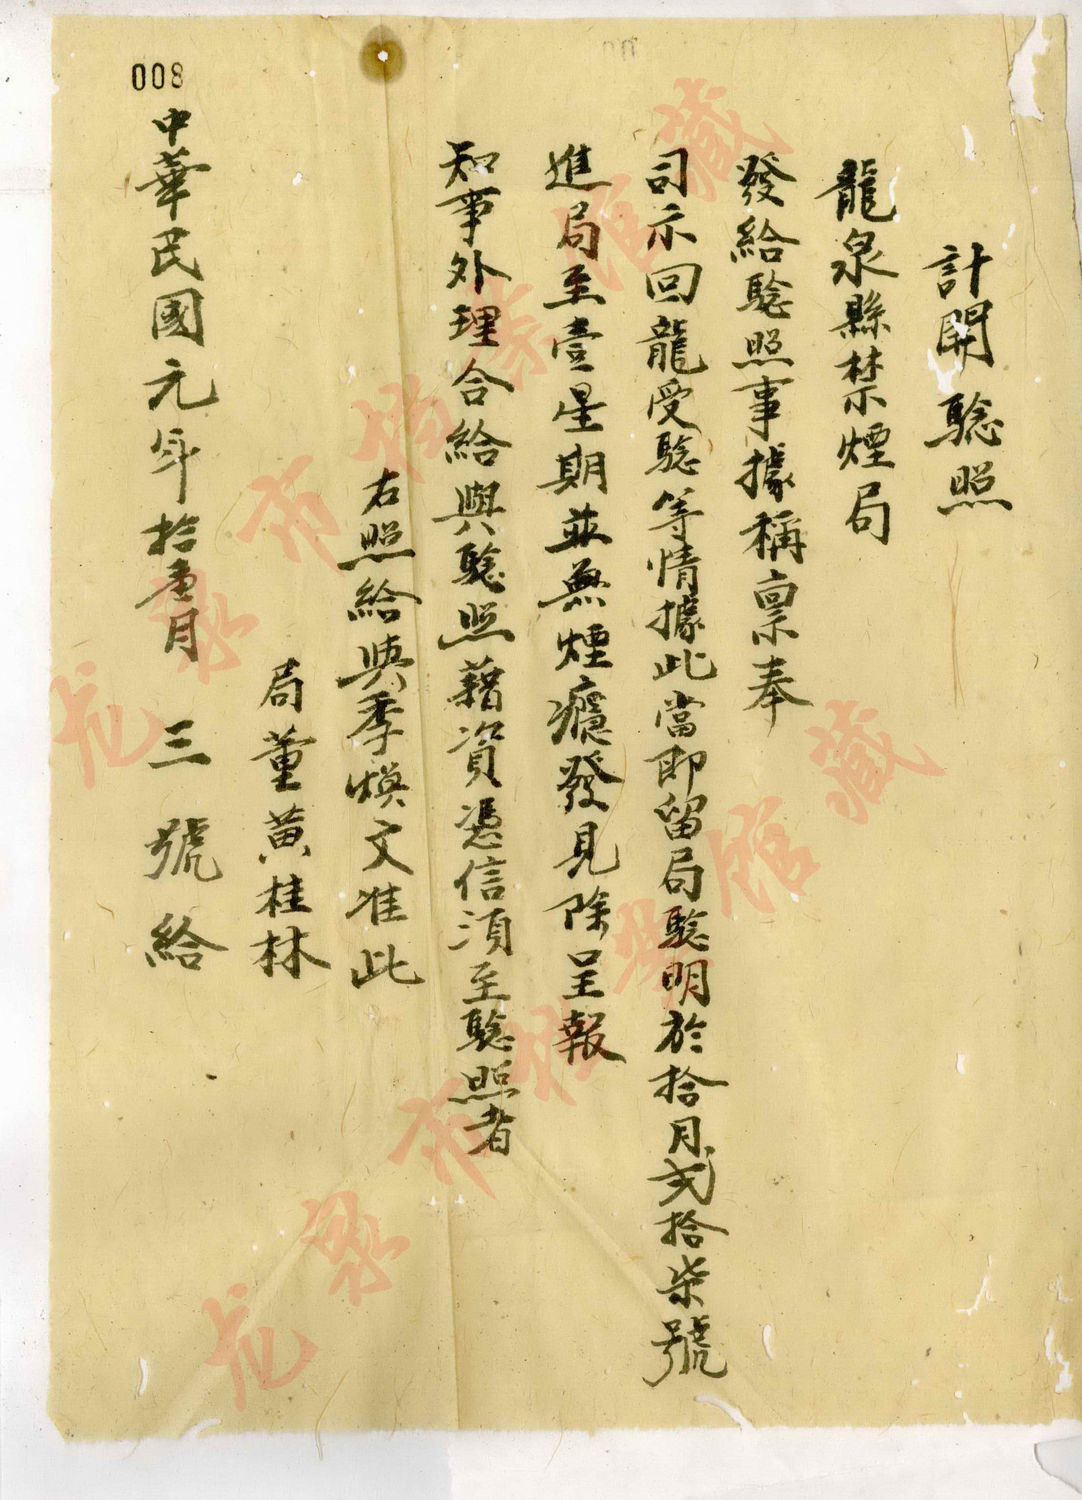 計開騐照
龍泉縣禁煙局
發給騐照事據稱禀奉
司示回龍受騐等情據此當即留局騐明於拾月弍拾柒號
進局至壹星期並無煙癮發見除呈報
知事外理合給與騐照藉資憑信須至騐照者
右照給與季煥文准此
局董黄桂林
中華民國元年拾壹月 三 號 給
008
龙泉市档案馆藏
龙泉市档案馆藏